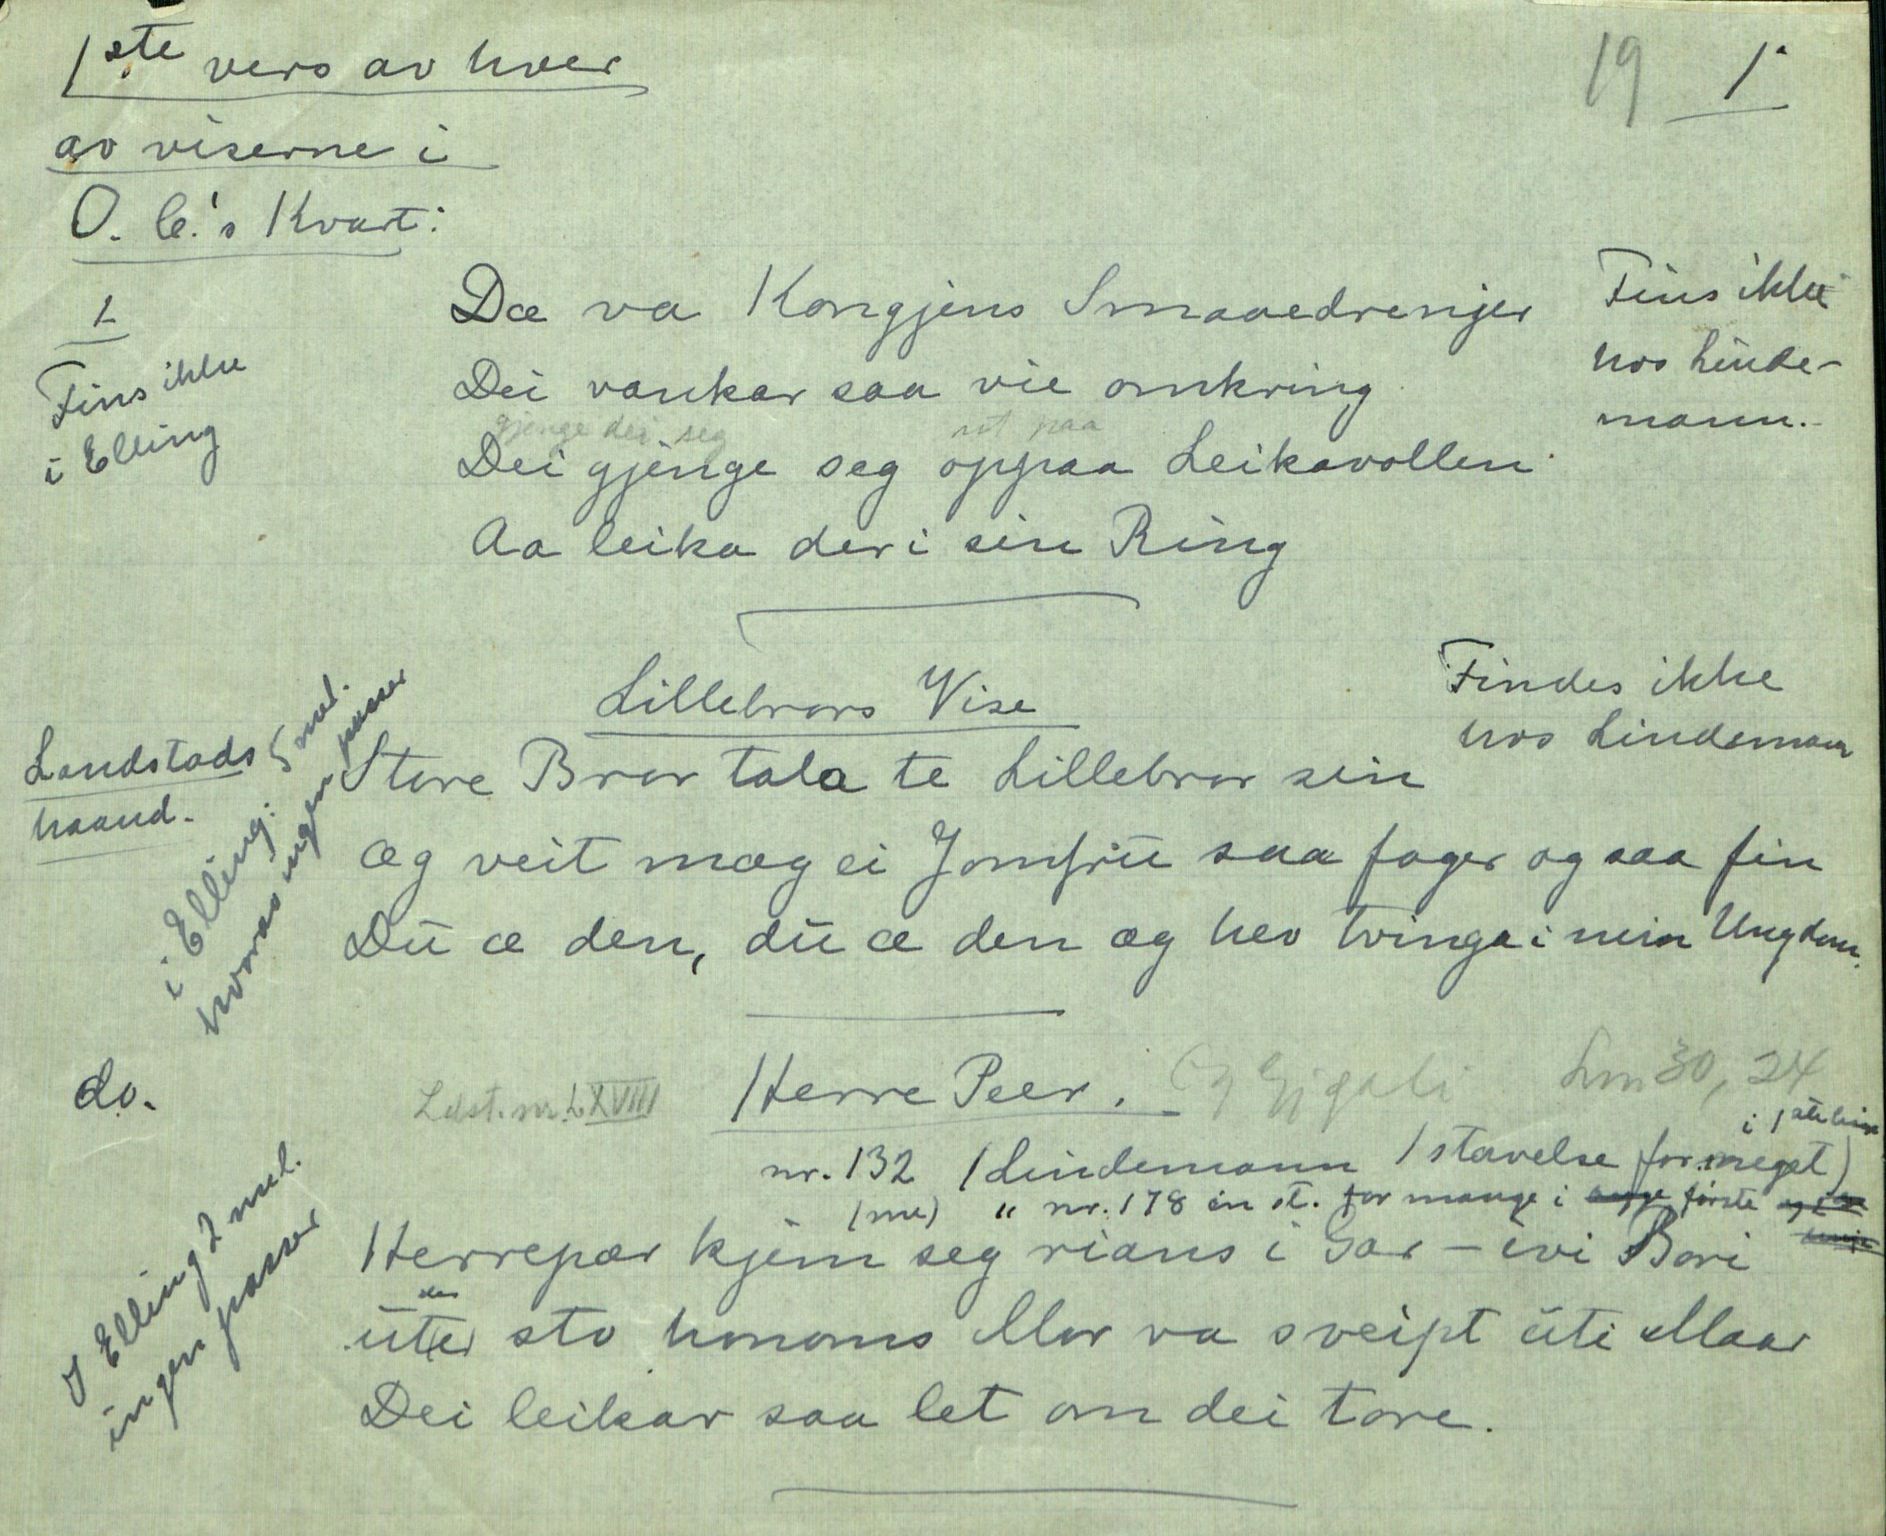 1ste vers av hver
av viserne i
O. C.'s Kvart:
19 1.
1
Fins ikke
i Elling
Dæ va Kongjens Smaaedrenjer
Dei vankar saa vie omkring
gjenge dei seg ut paa
Dei gjenge seg oppaa Leikavollen
Aa leika der i sin Ring
Fins ikke
hos Linde-
mann.
Lillebrors Vise
Findes ikke
hos Lindeman
Landstads
haand.
i Elling: 5 mel.
hvoras ingen passer
Store Bror tala te Lillebror sin
æg veit mæg ei Jomfru saa fager og saa fin
Du æ den, du æ den æg hev tvinga i min Ungdom.
do.
Ldst. nr. LXVIII
Herre Peer.
Lm 30, 24
nr. 132 (Lindemann 1 stavelse for meget)
i 1ste linje
(me) " nr. 178 en st. for mange i første
I Elling 2 mel.
ingen passer
Herrepær kjem seg rians i Gar – ivi Bori
ute sto honoms Mor va sveipt uti Maar
Dei leikar saa let om dei tore.